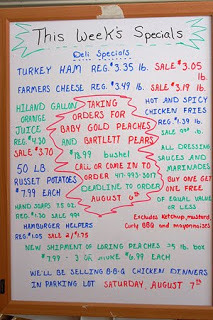 This Week's Specials
Deli Specials
TURKEY HAM REG. $3.35 lb. SALE $3.05 lb.
FARMERS CHEESE REG. $3.49 lb. SALE $3.19 lb.
HILAND GALLON
ORANGE
JUICE
REG. $4.30
SALE $3.70
50 LB
RUSSET POTATOES
$7.99 EACH
HAND SOAPS 7.5 OZ.
REG. $1.30 SALE 99¢
HAMBURGER HELPERS
REG. $1.05 SALE 2/$1.75
TAKING
ORDERS FOR
BABY GOLD PEACHES
AND BARTLETT PEARS
$18.99 bushel
CALL OR COME IN TO
ORDER 417-993-5017
DEADLINE TO ORDER
AUGUST 6TH
HOT AND SPICY
CHICKEN FRIES
REG. $1.39 lb.
SALE 99¢ lb.
ALL DRESSING
SAUCES AND
MARINADES
BUY ONE GET
ONE FREE
OF EQUAL VALUE
OR LESS
Excludes ketchup, mustard,
Curly BBQ and mayonnaises
NEW SHIPMENT OF LORING PEACHES 25 lb. box
$7.99 - 3 OR MORE $6.99 EACH
WE'LL BE SELLING B-B-Q CHICKEN DINNERS
IN PARKING LOT SATURDAY, AUGUST 7TH